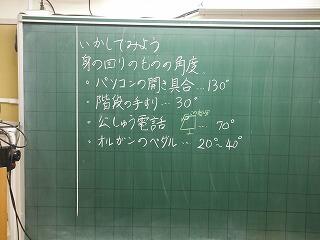 いかしてみよう
身の回りのものの角度
・パソコンの開き具合…130°
・階段の手すり…30°
・公しゅう電話 … 70°
・オルガンのペダル… 20°~40°